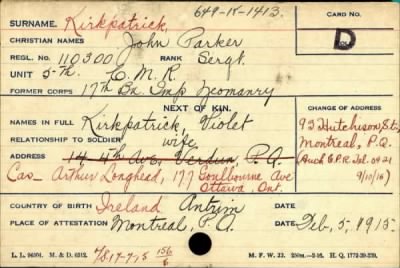 649-K-1413.
SURNAME. Kirkpatrick, CARD NO.
CHRISTIAN NAMES John Parker D
REGL. NO. 110300 RANK Sergt.
UNIT 5th. C. M. R.
FORMER CORPS 17th Bn. Imp Yeomanry
NEXT OF KIN. CHANGE OF ADDRESS
NAMES IN FULL Kirkpatrick, Violet 93 Hutchison St.,
RELATIONSHIP TO SOLDIER wife Montreal, P.Q.
ADDRESS 14 4th Ave. Verdun, P.Q. (Auth C.P.R. Tel. 0421
Cas Arthur Longhead, 177 Goulbourne Ave 9/10/16)
Ottawa, Ont.
COUNTRY OF BIRTH Ireland Antrim
PLACE OF ATTESTATION Montreal, P.Q. Feb, 5, 1915.
L. L. 94904. M. & D. 6312. M. F. W. 22. H. Q. 1772-39-339.